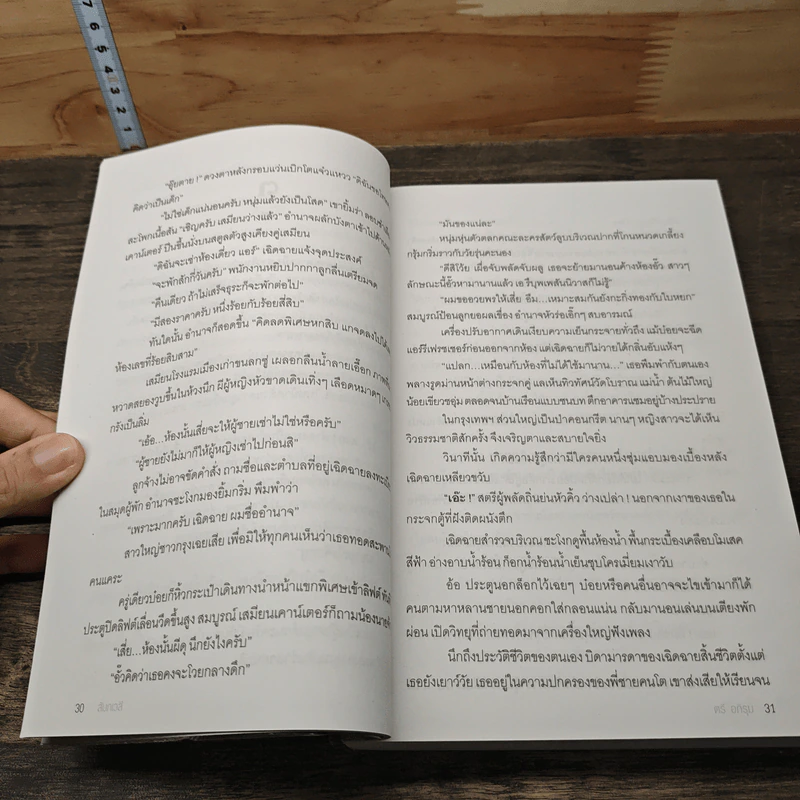 7
6
5
4
3
2
1
"อุ๊ยตาย !" ดวงตาหลังกรอบแว่นเบิกโตแจ๋วแหวว "ดิฉัน
คิดว่าเป็นเด็ก"
"ไม่ใช่เด็กแน่นอนครับ หนุ่มแล้วยังเป็นโสด" เขายิ้มร่า
สะโพกเนื้อสัน "เชิญครับ เสมียนว่างแล้ว" อำนาจผลักบังตาเข้าไปด้าน
เคาน์เตอร์ ปีนขึ้นนั่งบนสตูลตัวสูงเคียงคู่เสมียน
"ดิฉันจะเช่าห้องเดี่ยว แอร์" เฉิดฉายแจ้งจุดประสงค์
"จะพักสักกี่วันครับ" พนักงานหยิบปากกาลูกลื่นเตรียมจด
"คืนเดียว ถ้าไม่เสร็จธุระก็จะพักต่อไป"
"มีสองราคาครับ หนึ่งร้อยกับร้อยสี่สิบ"
ทันใดนั้น อำนาจก็สอดขึ้น "คิดลดพิเศษหกสิบ แกจดลงไป
ห้องเลขที่ร้อยสิบสาม"
เสมียนโรงแรมเมืองเก่าขนลุกซู่ เผลอกลืนน้ำลายเอื๊อก
หวาดสยองวูบขึ้นในห้วงนึก ผีผู้หญิงหัวขาดเดินเทิ่งๆ เลือดหมาดๆ
กรังเป็นลิ่ม
"เอ้อ...ห้องนั้นเสี่ยจะให้ผู้ชายเช่าไม่ใช่หรือครับ"
"ผู้ชายยังไม่มาก็ให้ผู้หญิงเช่าไปก่อนสิ"
ลูกจ้างไม่อาจขัดคำสั่ง ถามชื่อและตำบลที่อยู่เฉิดฉายลงทะเบียน
ในสมุดผู้พัก อำนาจชะโงกมองยิ้มกริ่ม พึมพำว่า
"เพราะมากครับ เฉิดฉาย ผมชื่ออำนาจ"
สาวใหญ่ชาวกรุงเฉยเสีย เพื่อมิให้ทุกคนเห็นว่าเธอทอดสะพาน
คนแคระ
ครู่เดียวบ๋อยก็หิ้วกระเป๋าเดินทางนำหน้าแขกพิเศษเข้าลิฟต์
ประตูปิดลิฟต์เลื่อนวืดขึ้นสูง สมบูรณ์ เสมียนเคาน์เตอร์ก็ถามน้องนาย
"เสี่ย...ห้องนั้นผีดุ นึกยังไงครับ"
"อั๊วคิดว่าเธอคงจะโวยกลางดึก"
30 สัมภเวสี
"มันของแน่ละ"
หนุ่มหุ่นตัวตลกคณะละครสัตว์ลูบบริเวณปากที่โกนหนวดเกลี้ยง
กรุ้มกริ่มราวกับวัยรุ่นคะนอง
"ดีสิโว้ย เผื่อจับพลัดจับผลู เธอจะย้ายมานอนค้างห้องอั๊ว สาวๆ
ลักษณะนี้อั๊วหามานานแล้ว เอ รึบุพเพสันนิวาสก็ไม่รู้"
"ผมขออวยพรให้เสี่ย อืม...เหมาะสมกันยังกะกิ่งทองกับใบหยก"
สมบูรณ์ป้อนลูกยอผลเขื่อง อำนาจหัวร่อเอิ๊กๆ สบอารมณ์
เครื่องปรับอากาศเดินเงียบความเย็นกระจายทั่วถึง แม้บ๋อยจะฉีด
แอร์รีเฟรชเชอร์ก่อนออกจากห้อง แต่เฉิดฉายก็ไม่วายได้กลิ่นอับแห้งๆ
"แปลก...เหมือนกับห้องที่ไม่ได้ใช้มานาน..." เธอพึมพำกับตนเอง
พลางรูดม่านหน้าต่างกระจกดู แลเห็นทิวทัศน์วัดโบราณ แม่น้ำ ต้นไม้ใหญ่
น้อยเขียวชอุ่ม ตลอดจนบ้านเรือนแบบชนบท ตึกอาคารแซมอยู่บ้างประปราย
ในกรุงเทพฯ ส่วนใหญ่เป็นป่าคอนกรีต นานๆ หญิงสาวจะได้เห็น
วิวธรรมชาติสักครั้ง จึงเจริญตาและสบายใจยิ่ง
วินาทีนั้น เกิดความรู้สึกว่ามีใครคนหนึ่งซุ่มแอบมองเบื้องหลัง
เฉิดฉายเหลียวขวับ
"เอ๊ะ !" สตรีผู้พลัดถิ่นย่นหัวคิ้ว ว่างเปล่า ! นอกจากเงาของเธอใน
กระจกตู้ที่ฝังติดผนังตึก
เฉิดฉายสำรวจบริเวณ ชะโงกดูพื้นห้องน้ำ พื้นกระเบื้องเคลือบโมเสค
สีฟ้า อ่างอาบน้ำร้อน ก็อกน้ำร้อนน้ำเย็นชุบโครเมี่ยมเงาวับ
อ้อ ประตูนอกล็อกไว้เฉยๆ บ๋อยหรือคนอื่นอาจจะไขเข้ามาก็ได้
คนตามหาหลานชายนอกคอกใส่กลอนแน่น กลับมานอนเล่นบนเตียงพัก
ผ่อน เปิดวิทยุที่ถ่ายทอดมาจากเครื่องใหญ่ฟังเพลง
นึกถึงประวัติชีวิตของตนเอง บิดามารดาของเฉิดฉายสิ้นชีวิตตั้งแต่
เธอยังเยาว์วัย เธออยู่ในความปกครองของพี่ชายคนโต เขาส่งเสียให้เรียนจน
ตรี อภิรุม 31